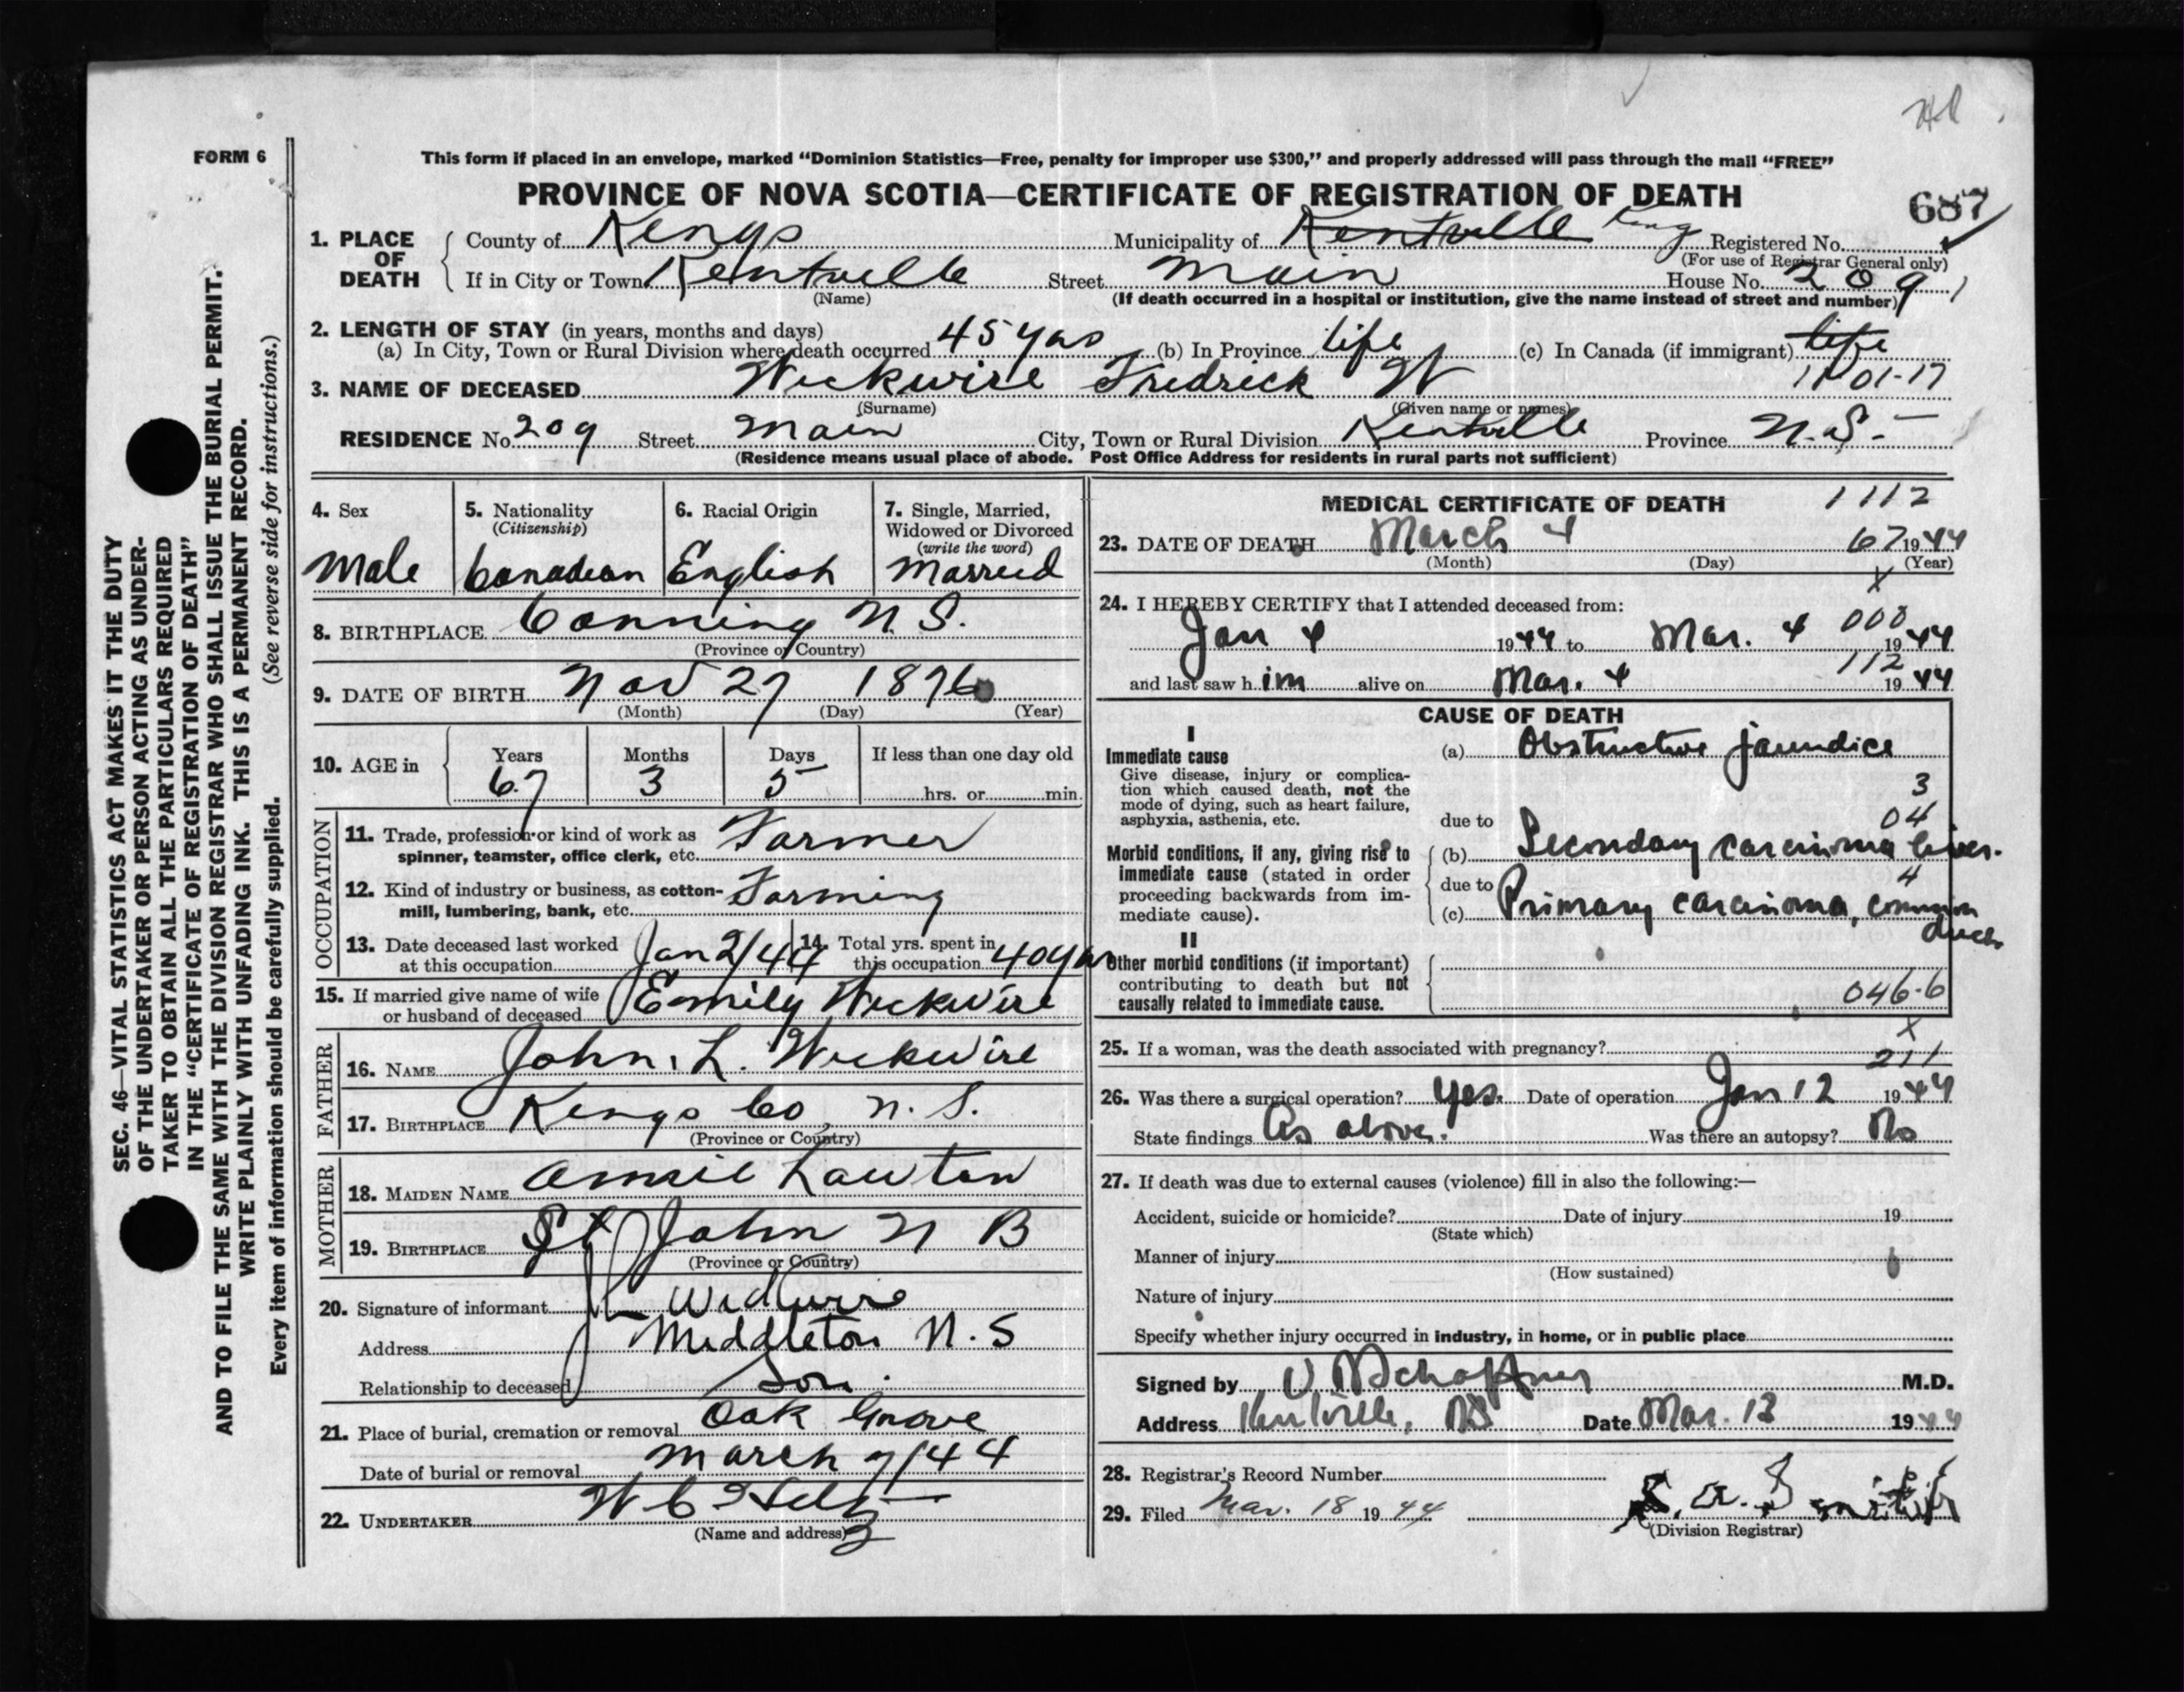 FORM 6
This form if placed in an envelope, marked “Dominion Statistics—Free, penalty for improper use $300,” and properly addressed will pass through the mail “FREE”
PROVINCE OF NOVA SCOTIA—CERTIFICATE OF REGISTRATION OF DEATH
687
1. PLACE OF DEATH
County of Kings Municipality of Kentville Kings Registered No.
(For use of Registrar General only)
If in City or Town Kentville Street Main House No. 209
(Name) (If death occurred in a hospital or institution, give the name instead of street and number)
2. LENGTH OF STAY (in years, months and days)
(a) In City, Town or Rural Division where death occurred 45 yrs (b) In Province life (c) In Canada (if immigrant) life
3. NAME OF DECEASED Wickwire Fredrick W 11-01-17
(Surname) (Given name or names)
RESIDENCE No. 209 Street Main City, Town or Rural Division Kentville Province N.S.
(Residence means usual place of abode. Post Office Address for residents in rural parts not sufficient)
4. Sex
Male
5. Nationality
(Citizenship)
Canadian
6. Racial Origin
English
7. Single, Married,
Widowed or Divorced
(write the word)
Married
8. BIRTHPLACE Canning N.S.
(Province or Country)
9. DATE OF BIRTH Nov 27 1876
(Month) (Day) (Year)
10. AGE in
Years Months Days If less than one day old
67 3 5 hrs. or min.
OCCUPATION
11. Trade, profession or kind of work as Farmer
spinner, teamster, office clerk, etc.
12. Kind of industry or business, as cotton- Farming
mill, lumbering, bank, etc.
13. Date deceased last worked at this occupation Jan 2/44
14. Total yrs. spent in this occupation 40 yrs
15. If married give name of wife
or husband of deceased Emily Wickwire
FATHER
16. NAME John L. Wickwire
17. BIRTHPLACE Kings Co, N.S.
(Province or Country)
MOTHER
18. MAIDEN NAME Annie Lawton
19. BIRTHPLACE St John N B
(Province or Country)
20. Signature of informant J L Wickwire
Address Middleton N.S
Relationship to deceased Son.
21. Place of burial, cremation or removal Oak Grove
Date of burial or removal March 7/44
22. UNDERTAKER W C
(Name and address)
MEDICAL CERTIFICATE OF DEATH 1112
23. DATE OF DEATH March 4 67 1944
(Month) (Day) (Year)
X
24. I HEREBY CERTIFY that I attended deceased from:
000
Jan 4 1944 to Mar. 4 1944
112
and last saw him alive on Mar. 4 1944
CAUSE OF DEATH
I
Immediate cause
Give disease, injury or complica-
tion which caused death, not the
mode of dying, such as heart failure,
asphyxia, asthenia, etc.
(a) Obstructive jaundice
3
04
due to
Morbid conditions, if any, giving rise to
immediate cause (stated in order
proceeding backwards from im-
mediate cause).
(b) Secondary carcinoma liver.
4
due to
(c) Primary carcinoma, common duct.
II
Other morbid conditions (if important)
contributing to death but not
causally related to immediate cause.
046.6
X
25. If a woman, was the death associated with pregnancy?
211
26. Was there a surgical operation? Yes. Date of operation Jan 12 1944
State findings As above. Was there an autopsy? No
27. If death was due to external causes (violence) fill in also the following:—
Accident, suicide or homicide? Date of injury 19
(State which)
Manner of injury
(How sustained)
Nature of injury
Specify whether injury occurred in industry, in home, or in public place
Signed by V D Schaffner M.D.
Address Kentville, NS Date Mar. 13 1944
28. Registrar's Record Number
29. Filed Mar. 18 1944
(Division Registrar)
SEC. 46—VITAL STATISTICS ACT MAKES IT THE DUTY
OF THE UNDERTAKER OR PERSON ACTING AS UNDER-
TAKER TO OBTAIN ALL THE PARTICULARS REQUIRED
IN THE “CERTIFICATE OF REGISTRATION OF DEATH”
AND TO FILE THE SAME WITH THE DIVISION REGISTRAR WHO SHALL ISSUE THE BURIAL PERMIT.
WRITE PLAINLY WITH UNFADING INK. THIS IS A PERMANENT RECORD.
Every item of information should be carefully supplied. (See reverse side for instructions.)